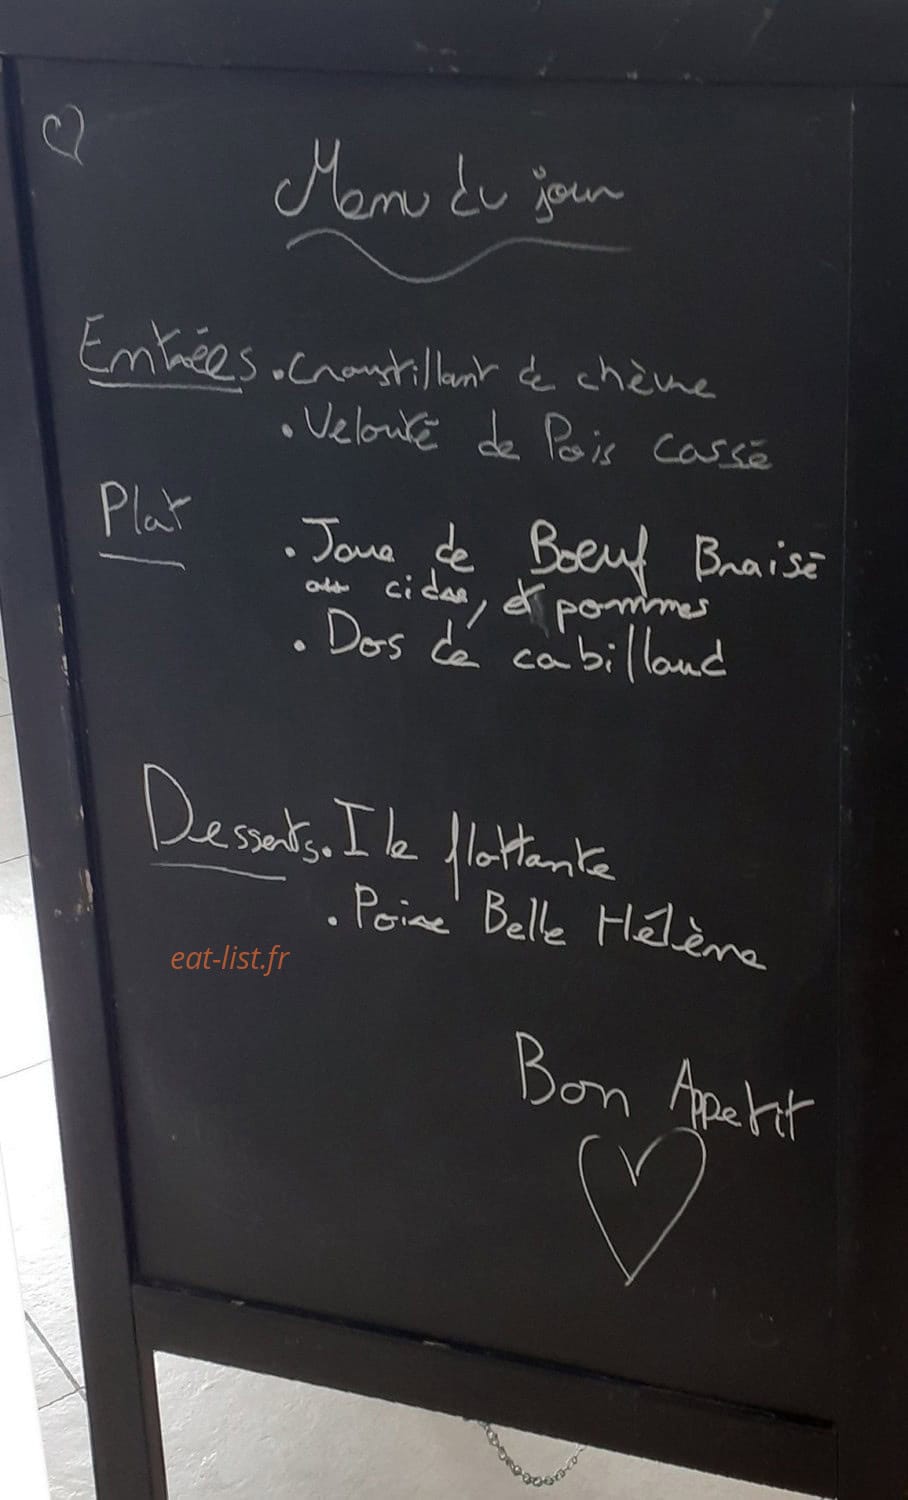 Menu du jour
Entrées . Croustillant de chèvre
. Velouté de Pois cassé
Plat
. Joue de Boeuf Braisé
au cidre, et pommes
. Dos de cabillaud
Desserts . Ile flottante
. Poire Belle Hélène
eat-list.fr
Bon Appetit